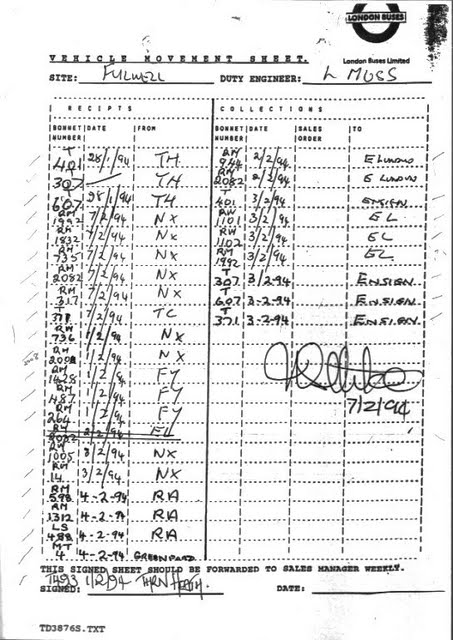 LONDON BUSES
London Buses Limited
VEHICLE MOVEMENT SHEET.
SITE: FULWELL DUTY ENGINEER: L MOSS
RECEIPTS COLLECTIONS
BONNET NUMBER DATE FROM BONNET NUMBER DATE SALES ORDER TO
T 401 28/1/94 TH RM 944 2/2/94
T 307 TH RM 2082 2/2/94
T 607 28/1/94 TH T 401 3/2/94 ENSIGN
RM 1992 /2/94 NX RW 1101 3/2/94 EL
RM 1832 /2/94 NX RW 1102 3/2/94 EL
RM 735 /2/94 NX RM 1992 3/2/94 EL
RM 2082 /2/94 NX T 307 3/2-94 ENSIGN
RM 317 /2/94 NX T 607 3-2-94 ENSIGN.
T /2/94 TC T 371 3-2-94 ENSIGN.
RM 736 /2/94 NX
RM /2/94 NX
RM 1428 /2/94 FY
RM 487 /2/94 FY
RM 264 /2/94 FY
2/94 EL
1005 3/2/94 NX
RM 14 3/2/94 NX
RM 598 4-2-94 RA
RM 1312 4-2-94 RA
LS 488 4-2-94 RA
MT 4 4-2-94
7/2/94
THIS SIGNED SHEET SHOULD BE FORWARDED TO SALES MANAGER WEEKLY.
T493 1/2/94
SIGNED: DATE:
TD3876S.TXT